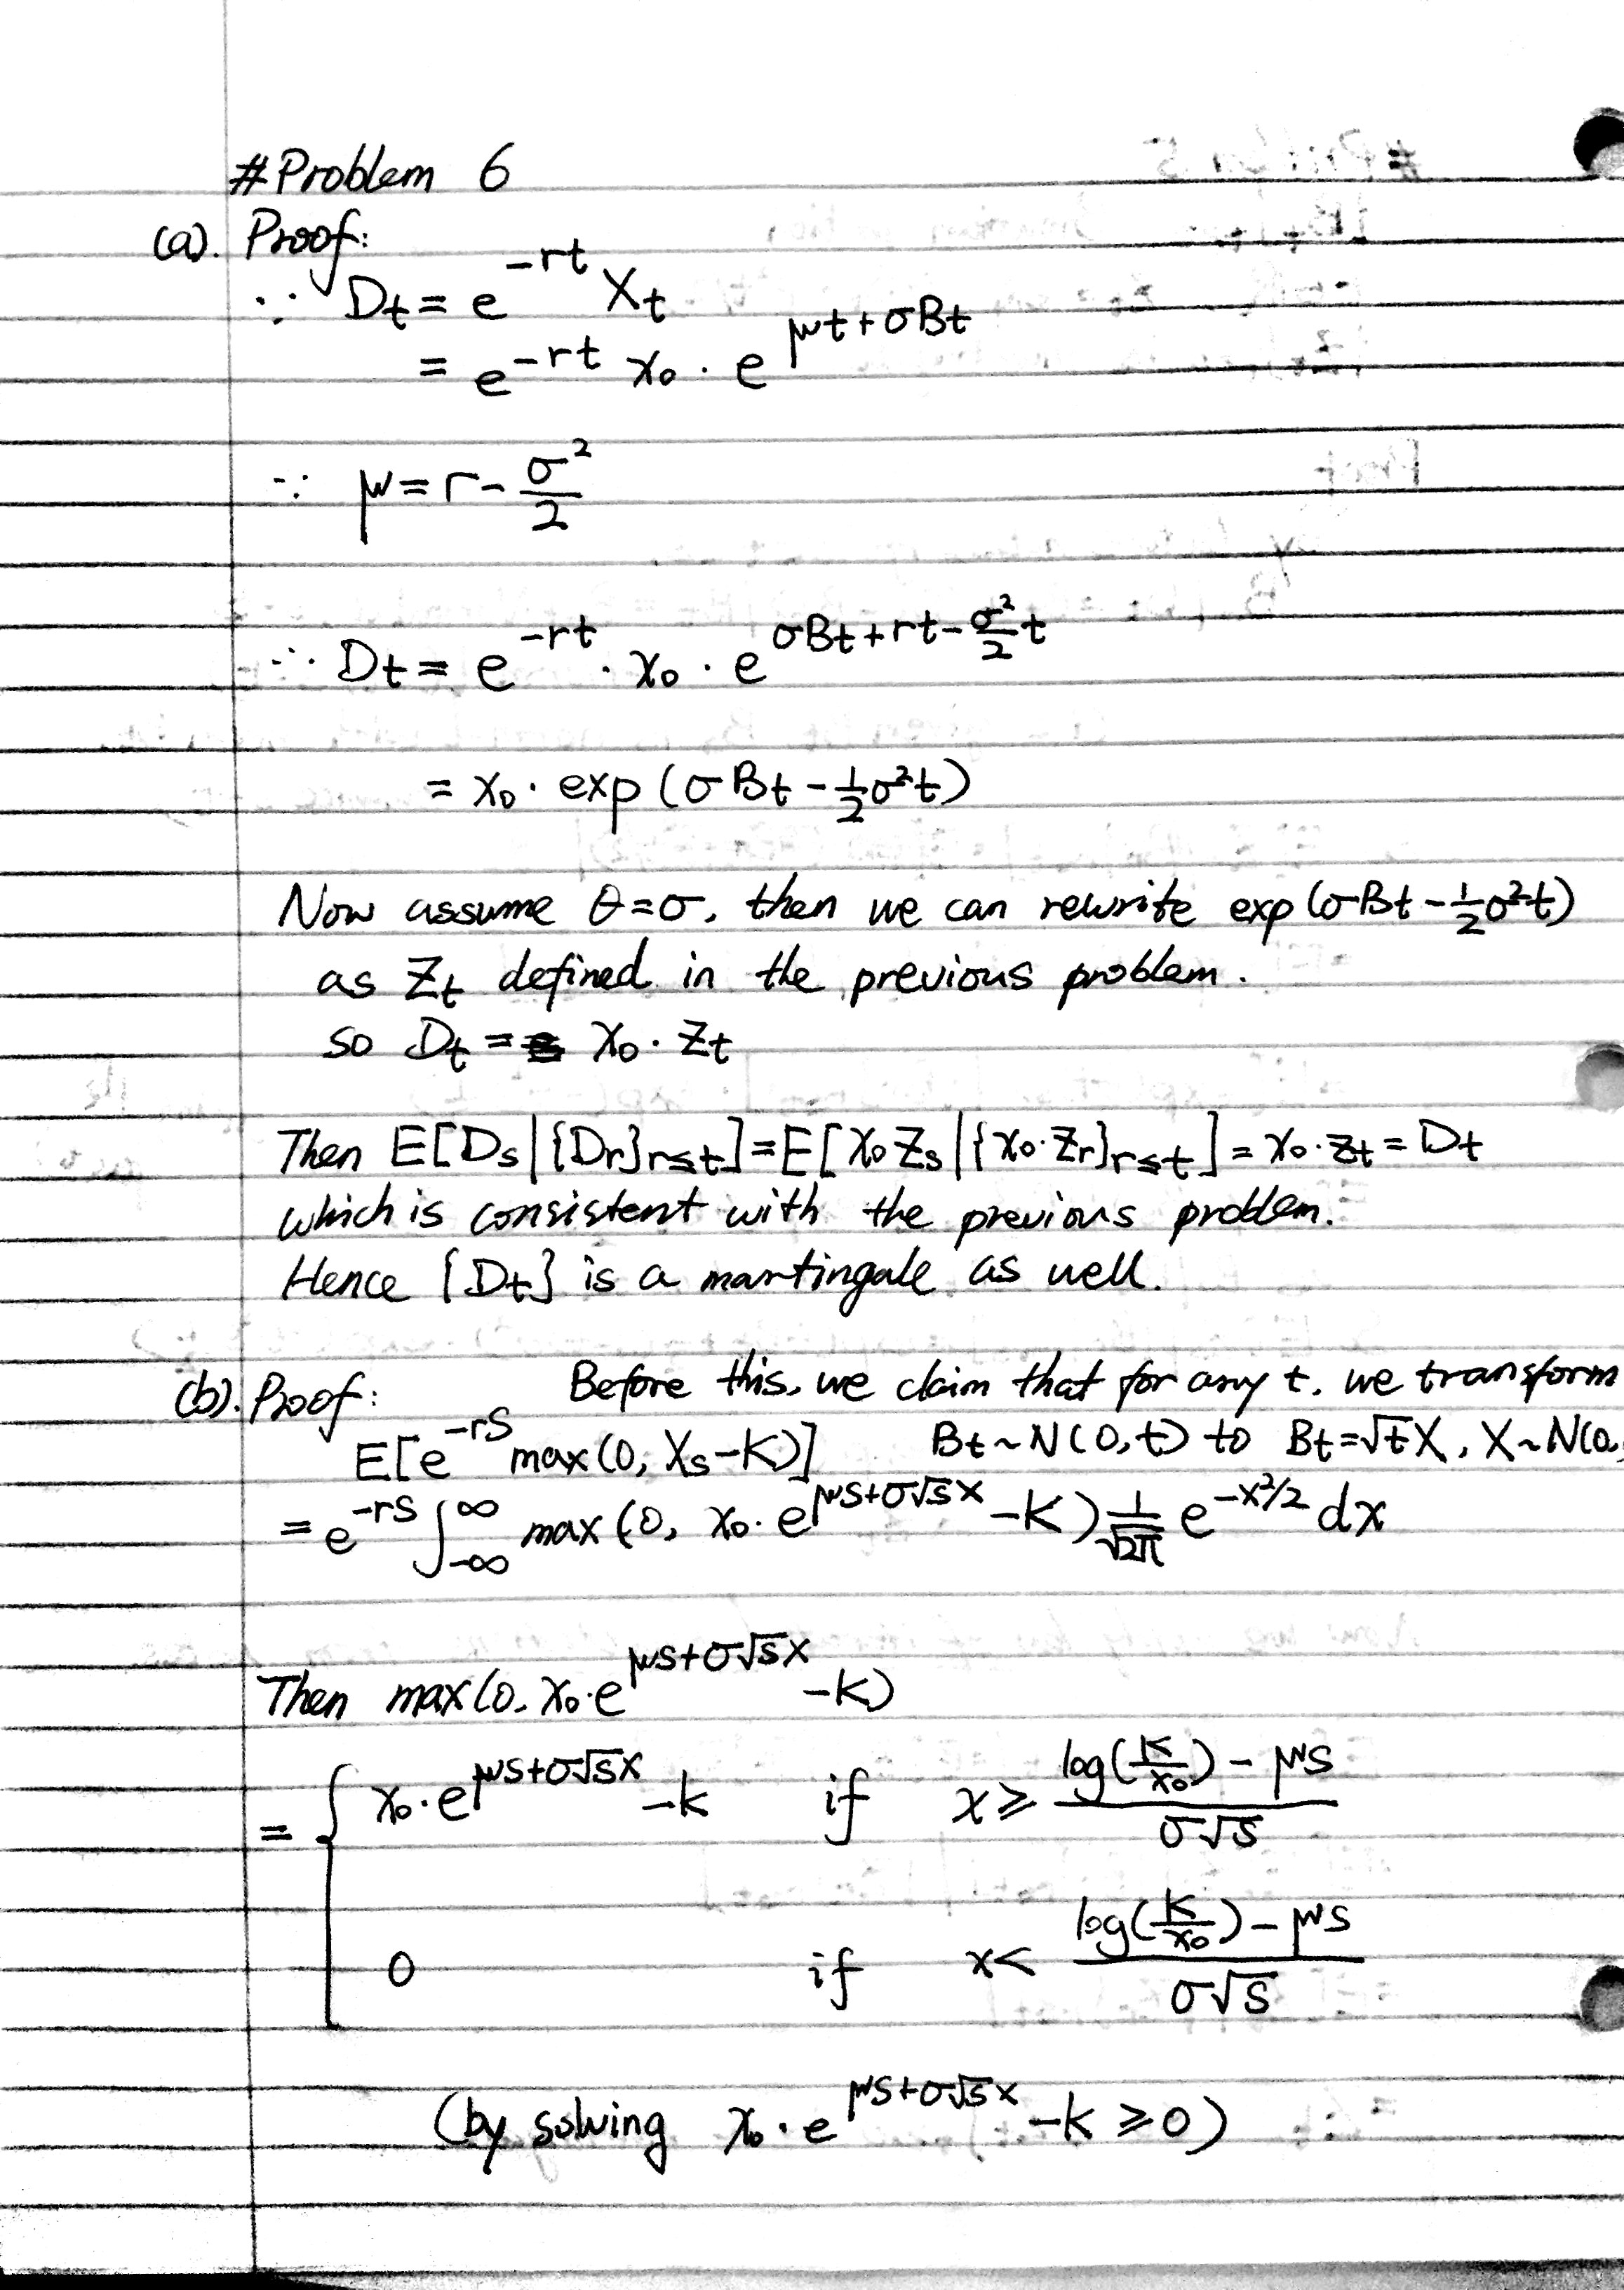 #Problem 6
(a). Proof:
∵ Dt = e^{-rt} Xt
= e^{-rt} x₀ · e^{μt+σBt}
∵ μ = r - σ²/2
∴ Dt = e^{-rt} · x₀ · e^{σBt+rt-σ²/2 t}
= x₀ · exp(σBt - 1/2 σ²t)
Now assume θ=σ, then we can rewrite exp(σBt - 1/2 σ²t)
as Zt defined in the previous problem.
so Dt = x₀ · Zt
Then E[Ds|{Dr}r≤t] = E[x₀Zs|{x₀·Zr}r≤t] = x₀·Zt = Dt
which is consistent with the previous problem.
Hence {Dt} is a martingale as well.
(b). Proof: Before this, we claim that for any t, we transform
E[e^{-rS} max(0, Xs-K)] Bt~N(0,t) to Bt=√t X, X~N(0,
= e^{-rS} ∫_{-∞}^{∞} max(0, x₀·e^{μS+σ√S x} - K) 1/√2π e^{-x²/2} dx
Then max(0, x₀·e^{μS+σ√S x} - K)
= { x₀·e^{μS+σ√S x} - K if x ≥ (log(K/x₀) - μS)/(σ√S)
0 if x < (log(K/x₀) - μS)/(σ√S)
(by solving x₀·e^{μS+σ√S x} - K ≥ 0)